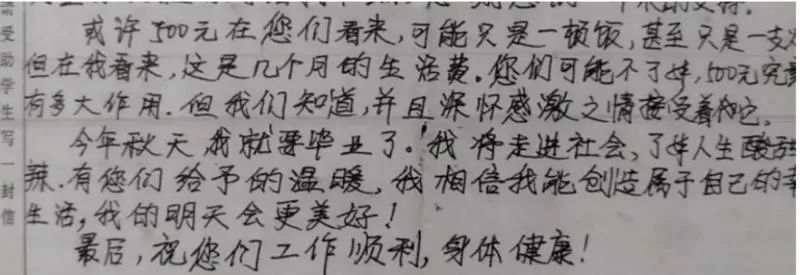 受助学生写一封信
的支持.
或许500元在您们看来,可能只是一顿饭,甚至只是一支
但在我看来,这是几个月的生活费.您们可能不了解,500元究竟
有多大作用.但我们知道,并且深怀感激之情接受着它。
今年秋天,我就要毕业了。我将走进社会,了解人生酸甜
辣.有您们给予的温暖,我相信我能创造属于自己的幸
生活,我的明天会更美好!
最后,祝您们工作顺利,身体健康!